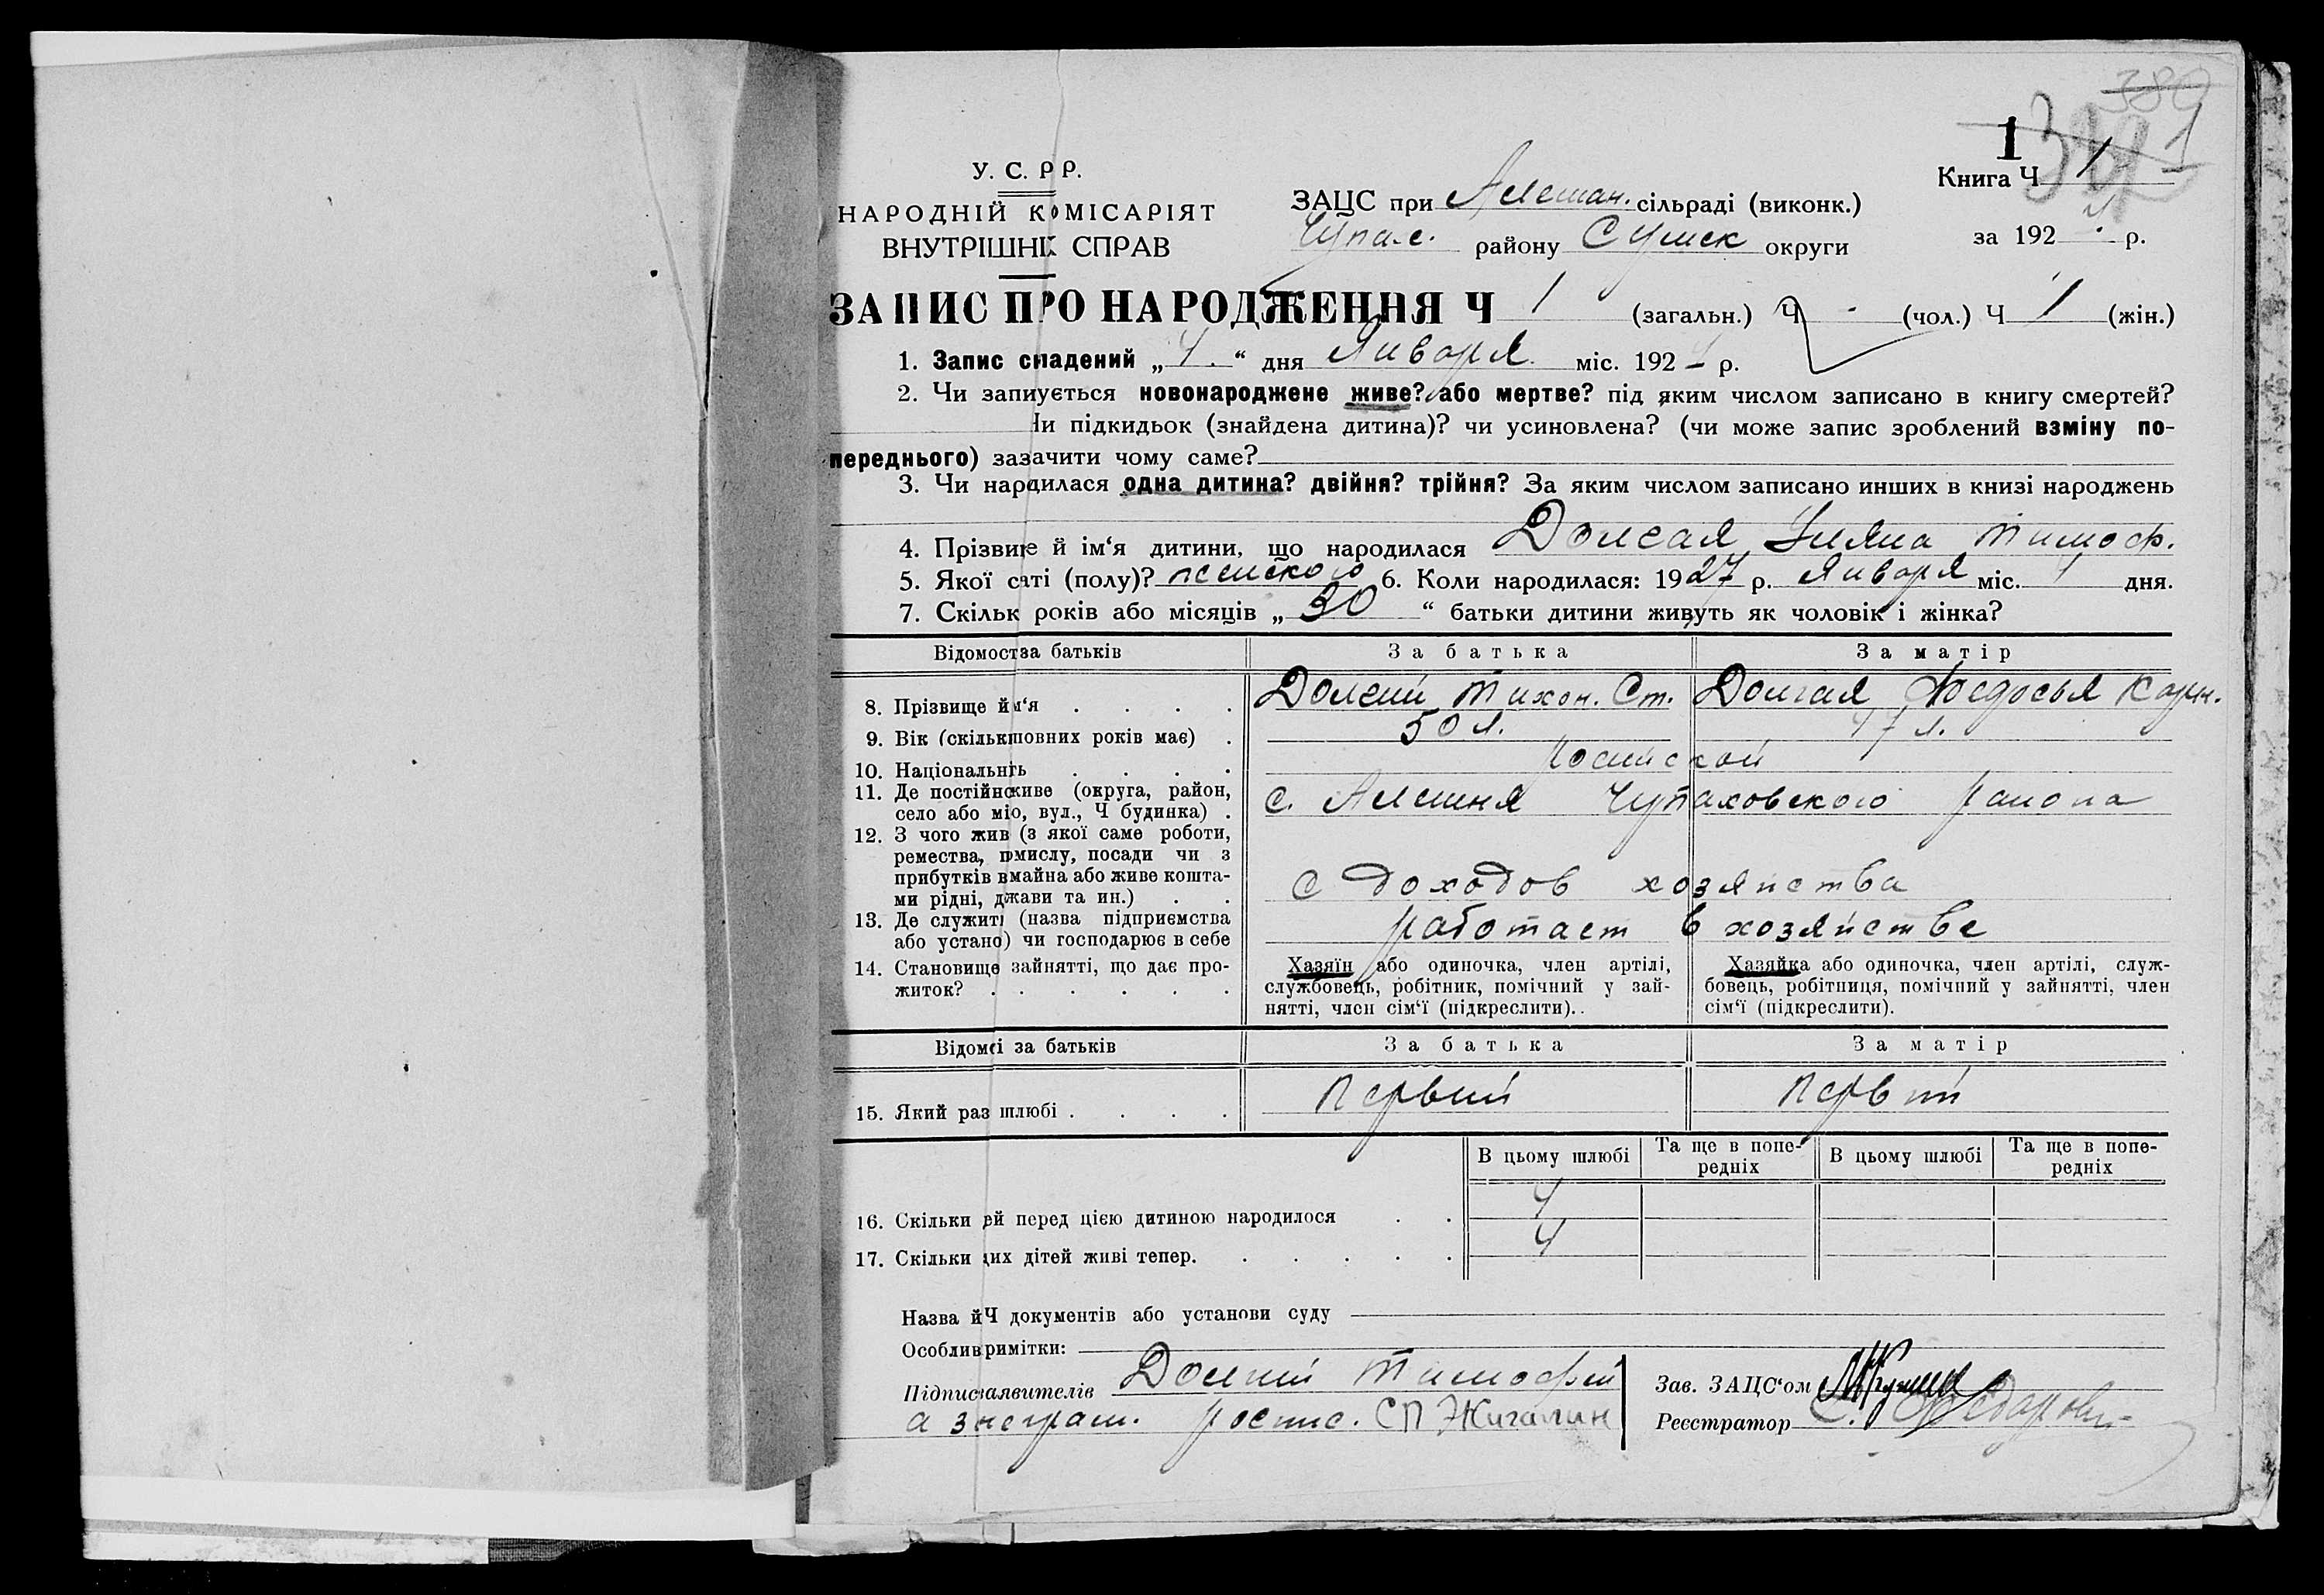 380
1
Книга Ч 1
У. С. Р Р.
НАРОДНІЙ КОМІСАРІЯТ
ВНУТРІШНІХ СПРАВ
ЗАЦС при Алешан. сільраді (виконк.)
Чупах. району Сумск округи
за 192 р.
ЗАПИС ПРО НАРОДЖЕННЯ Ч 1 (загальн.) Ч - (чол.) Ч 1 (жін.)
1. Запис складений „ 4. “ дня Января міс. 192 р.
2. Чи записується новонароджене живе? або мертве? під яким числом записано в книгу смертей?
Чи підкидьок (знайдена дитина)? чи усиновлена? (чи може запис зроблений взміну по-
переднього) зазачити чому саме?
3. Чи народилася одна дитина? двійня? трійня? За яким числом записано инших в книзі народжень
4. Прізвище й ім‘я дитини, що народилася Долгая Уляна Тимоф.
5. Якої статі (полу)? женского 6. Коли народилася: 1927 р. Января міс. 1 дня.
7. Скільки років або місяців „ 30 “ батьки дитини живуть як чоловік і жінка?
Відомости за батьків За батька За матір
8. Прізвище й ім‘я . . . . Долгий Тихон. Ст. Долгая Федосья Карп.
9. Вік (скільки повних років має) . 50 л. 47 л.
10. Національність . . . .
11. Де постійно живе (округа, район,
село або місто, вул., Ч будинка) . с. Алешня Чупаховского района
12. З чого живе (з якої саме роботи,
ремества, промислу, посади чи з
прибутків з майна або живе кошта-
ми рідні, держави та ин.) . . С доходов хозяйства
13. Де служить (назва підприємства
або установи) чи господарює в себе работает в хозяйстве
14. Становище в зайнятті, що дає про-
житок? . . . . . . .
Хазяїн або одиночка, член артілі,
службовець, робітник, помічний у зай-
нятті, член сім‘ї (підкреслити)..
Хазяйка або одиночка, член артілі, служ-
бовець, робітниця, помічний у зайнятті, член
сім‘ї (підкреслити).
Відомості за батьків За батька За матір
15. Який раз в шлюбі . . . . Первий Первий
В цьому шлюбі Та ще в попе-
редніх В цьому шлюбі Та ще в попе-
редніх
16. Скільки дітей перед цією дитиною народилося . . 4
17. Скільки з цих дітей живі тепер. . . . . . 4
Назва й Ч документів або установи суду
Особливі примітки:
Підпис заявителів Долгий Тимофей
а за неграм. роспис. СП Жигалин
Зав. ЗАЦС‘ом
Реєстратор